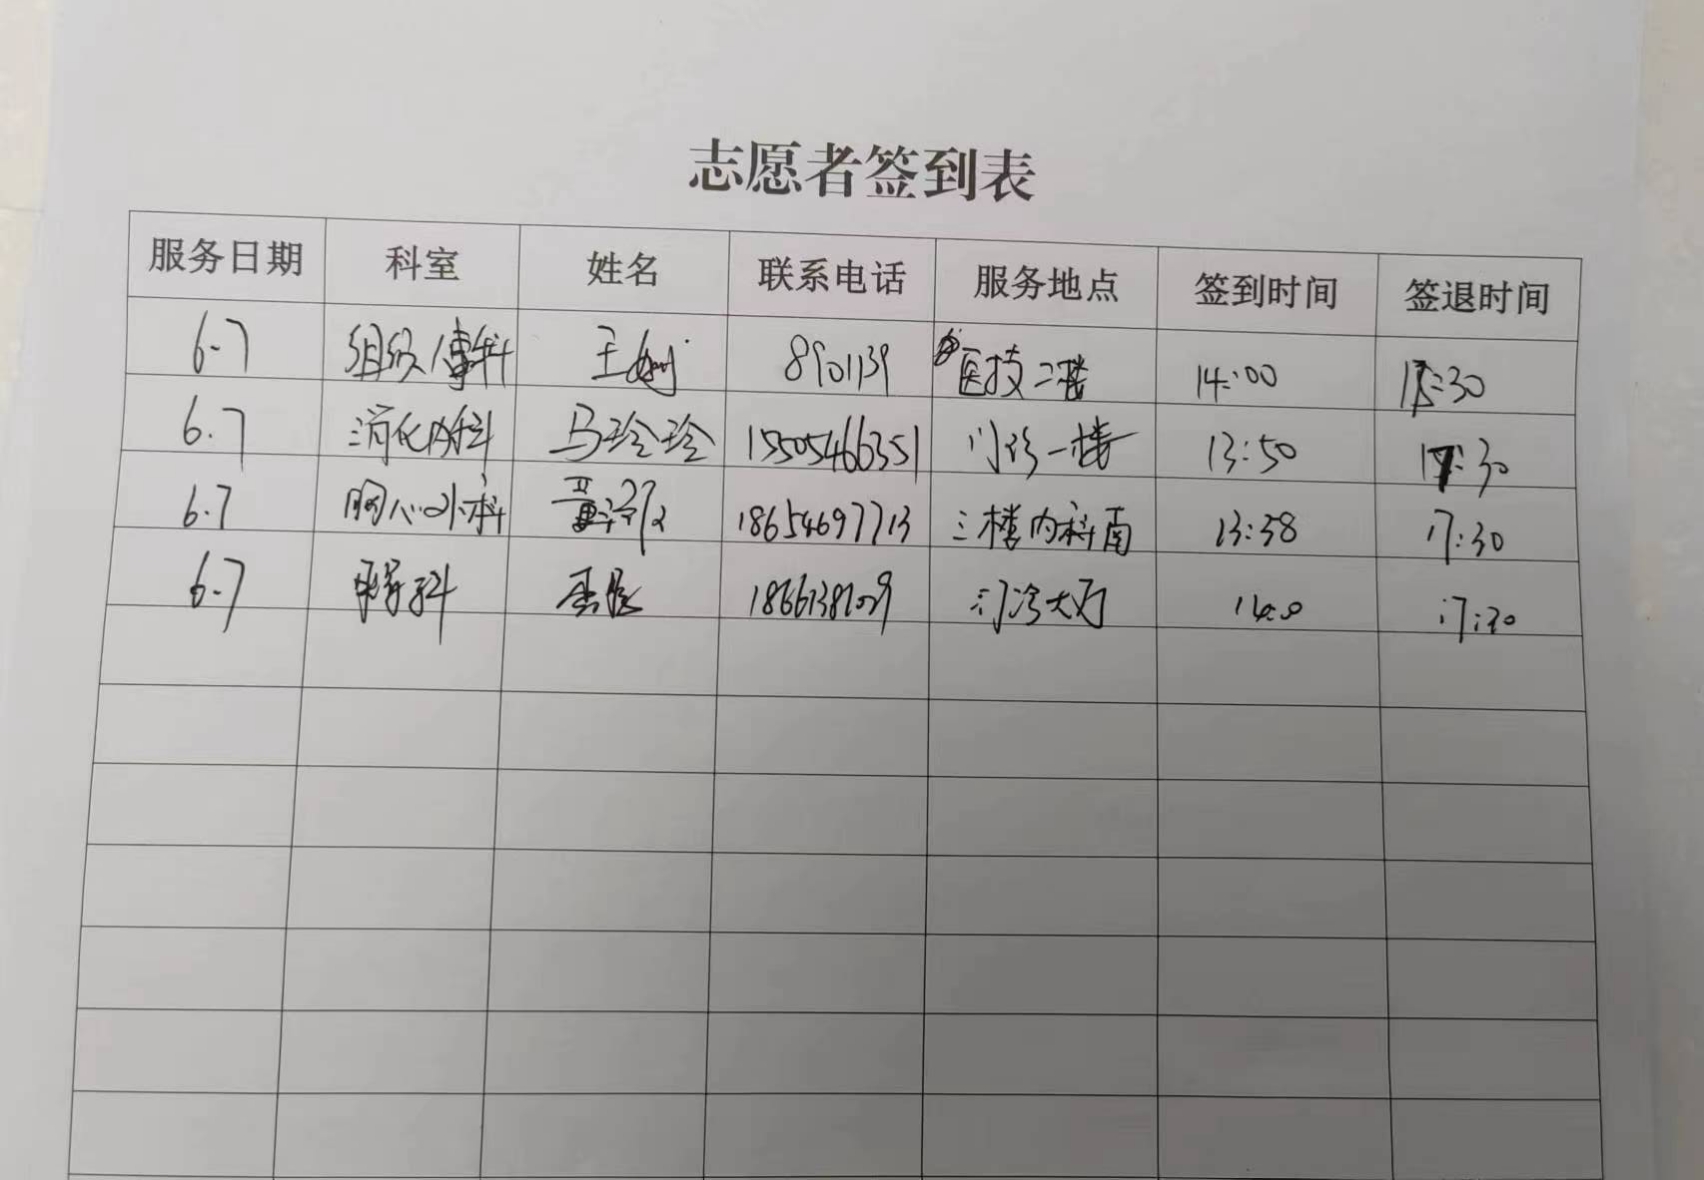 志愿者签到表
服务日期 科室 姓名 联系电话 服务地点 签到时间 签退时间
6.7 组织人事科 王 8901139 医技二楼 14:00 17:30
6.7 消化内科 马玲玲 15505466351 门诊一楼 13:50 17:30
6.7 胸心外科 18654697713 三楼内科南 13:38 17:30
6.7 门诊大厅 17:30